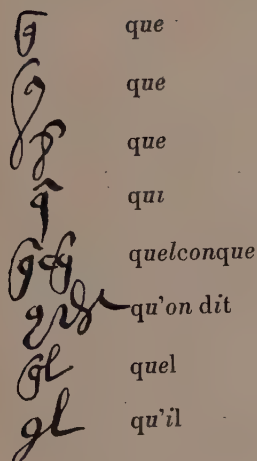 que
que
que
qui
quelconque
qu'on dit
quel
qu'il